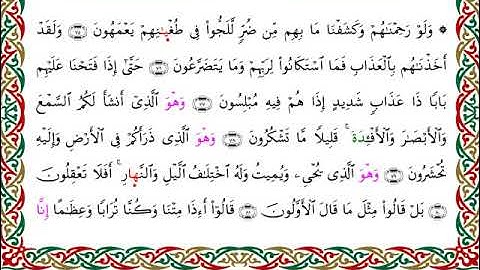 ۞ وَلَوْ رَحِمْنَٰهُمْ وَكَشَفْنَا مَا بِهِم مِّن ضُرٍّ لَّلَجُّوا۟ فِى طُغْيَٰنِهِمْ يَعْمَهُونَ ۝٧٥ وَلَقَدْ
أَخَذْنَٰهُم بِالْعَذَابِ فَمَا اسْتَكَانُوا۟ لِرَبِّهِمْ وَمَا يَتَضَرَّعُونَ ۝٧٦ حَتَّىٰٓ إِذَا فَتَحْنَا عَلَيْهِم
بَابًا ذَا عَذَابٍ شَدِيدٍ إِذَا هُمْ فِيهِ مُبْلِسُونَ ۝٧٧ وَهْوَ الَّذِىٓ أَنشَأَ لَكُمُ السَّمْعَ
وَالْأَبْصَٰرَ وَالْأَفْـِٔدَةَ ۚ قَلِيلًا مَّا تَشْكُرُونَ ۝٧٨ وَهْوَ الَّذِى ذَرَأَكُمْ فِى الْأَرْضِ وَإِلَيْهِ
تُحْشَرُونَ ۝٧٩ وَهْوَ الَّذِى يُحْىِۦ وَيُمِيتُ وَلَهُ اخْتِلَٰفُ الَّيْلِ وَالنَّهَارِ ۚ أَفَلَا تَعْقِلُونَ
۝٨٠ بَلْ قَالُوا۟ مِثْلَ مَا قَالَ الْأَوَّلُونَ ۝٨١ قَالُوٓا۟ أَءِذَا مِتْنَا وَكُنَّا تُرَابًا وَعِظَٰمًا إِنَّا